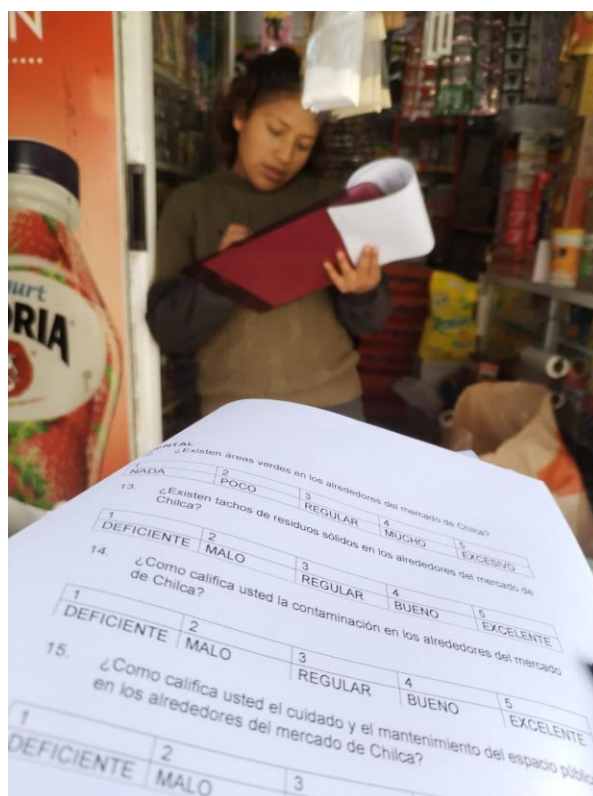 N
urt
RIA
NTAL
¿Existen áreas verdes en los alrededores del mercado de Chilca?
1 2 3 4 5
NADA POCO REGULAR MUCHO EXCESIVO
13. ¿Existen tachos de residuos sólidos en los alrededores del mercado de
Chilca?
1 2 3 4 5
DEFICIENTE MALO REGULAR BUENO EXCELENTE
14. ¿Como califica usted la contaminación en los alrededores del mercado
de Chilca?
1 2 3 4 5
DEFICIENTE MALO REGULAR BUENO EXCELENTE
15. ¿Como califica usted el cuidado y el mantenimiento del espacio públic
en los alrededores del mercado de Chilca?
1 2 3
DEFICIENTE MALO